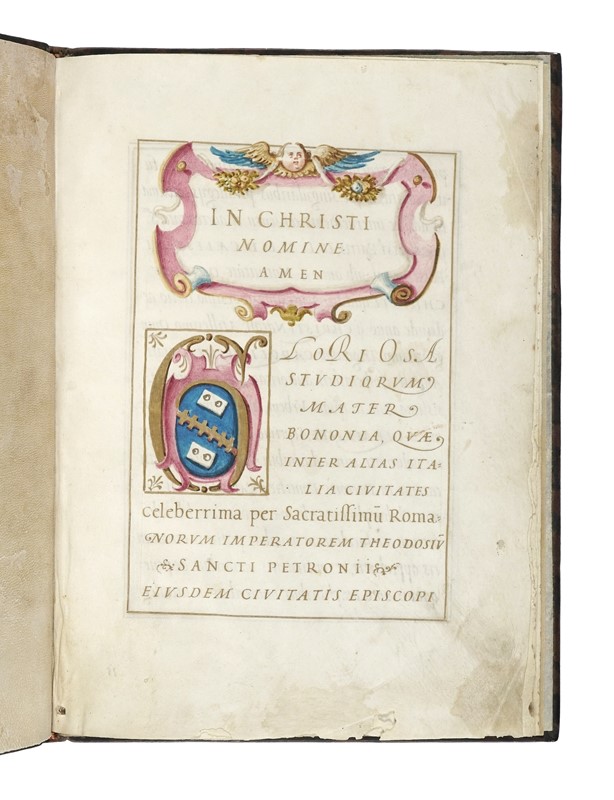 IN CHRISTI
NOMINE
AMEN
LORIOSA
STVDIORVM
MATER
BONONIA, QVÆ
INTER ALIAS ITA-
LIA CIVITATES
celeberrima per Sacratissimū Roma
NORVM IMPERATOREM THEODOSIV̄
SANCTI PETRONII
EIVSDEM CIVITATIS EPISCOPI